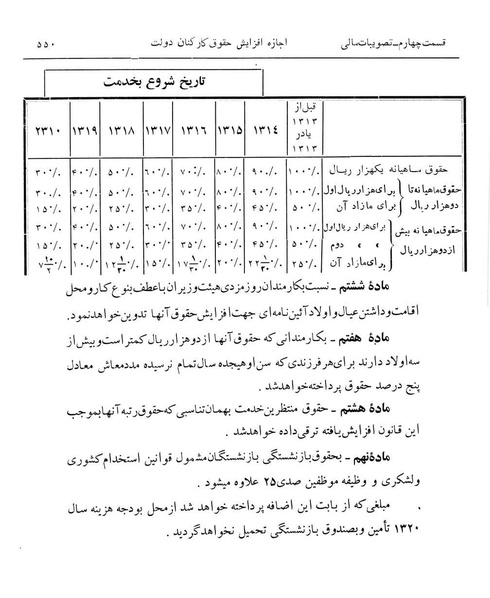 قسمت چهارم ـ تصویبات مالی اجازه افزایش حقوق کارکنان دولت ۵۵۰
تاریخ شروع بخدمت
قبل از ۱۳۱۳ یا در ۱۳۱۳ ۱۳۱۴ ۱۳۱۵ ۱۳۱۶ ۱۳۱۷ ۱۳۱۸ ۱۳۱۹ ۲۳۱۰
حقوق ماهیانه یکهزار ریال ۱۰۰٪ ۹۰٪ ۸۰٪ ۷۰٪ ۶۰٪ ۵۰٪ ۴۰٪ ۳۰٪
حقوق ماهیانه تا دو هزار ریال
برای هزار ریال اول ۱۰۰٪ ۹۰٪ ۸۰٪ ۷۰٪ ۶۰٪ ۵۰٪ ۴۰٪ ۳۰٪
برای مازاد آن ۵۰٪ ۴۵٪ ۴۰٪ ۳۵٪ ۳۰٪ ۲۵٪ ۲۰٪ ۱۵٪
حقوق ماهیانه بیش از دو هزار ریال
برای هزار ریال اول ۱۰۰٪ ۹۰٪ ۸۰٪ ۷۰٪ ۶۰٪ ۵۰٪ ۴۰٪ ۳۰٪
» » دوم ۵۰٪ ۴۵٪ ۴۰٪ ۳۵٪ ۳۰٪ ۲۵٪ ۲۰٪ ۱۵٪
برای مازاد آن ۲۵٪ ۲۰٪ ۱۵٪ ۱۰٪
مادهٔ ششم ـ نسبت بکارمندان روزمزدی هیئت وزیران با عطف بنوع کار و محل
اقامت و داشتن عیال و اولاد آئین نامه ای جهت افزایش حقوق آنها تدوین خواهد نمود.
مادهٔ هفتم ـ بکارمندانی که حقوق آنها از دو هزار ریال کمتر است و بیش از
سه اولاد دارند برای هر فرزندی که سن او هیجده سال تمام نرسیده مدد معاش معادل
پنج درصد حقوق پرداخته خواهد شد .
مادهٔ هشتم ـ حقوق منتظرین خدمت بهمان تناسبی که حقوق رتبه آنها بموجب
این قانون افزایش یافته ترقی داده خواهد شد .
مادهٔ نهم ـ بحقوق بازنشستگی بازنشستگان مشمول قوانین استخدام کشوری
ولشکری و وظیفه موظفین صدی ۲۵ علاوه میشود .
مبلغی که از بابت این اضافه پرداخته خواهد شد از محل بودجه هزینه سال
۱۳۲۰ تأمین و بصندوق بازنشستگی تحمیل نخواهد گردید .